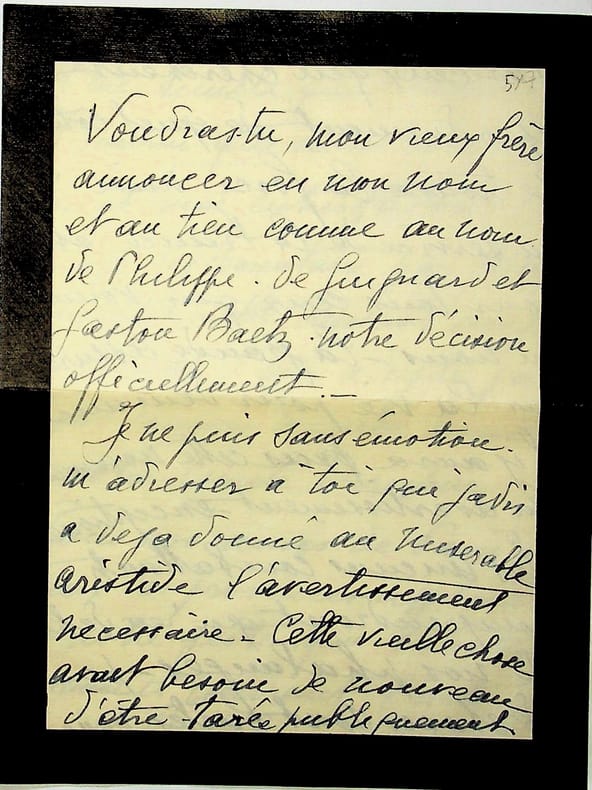 57
Voudrastu, mon vieux frère
annoncer en mon nom
et au tien comme au nom
de Philippe. de Guignard et
Gaston Baetz. notre décision
officiellement. _
Je ne puis sans émotion.
m'adresser à toi qui jadis
a deja donné au miserable
aristide l'avertissement
necessaire - Cette vieille chose
avait besoin de nouveau
d'être tarée publiquement.